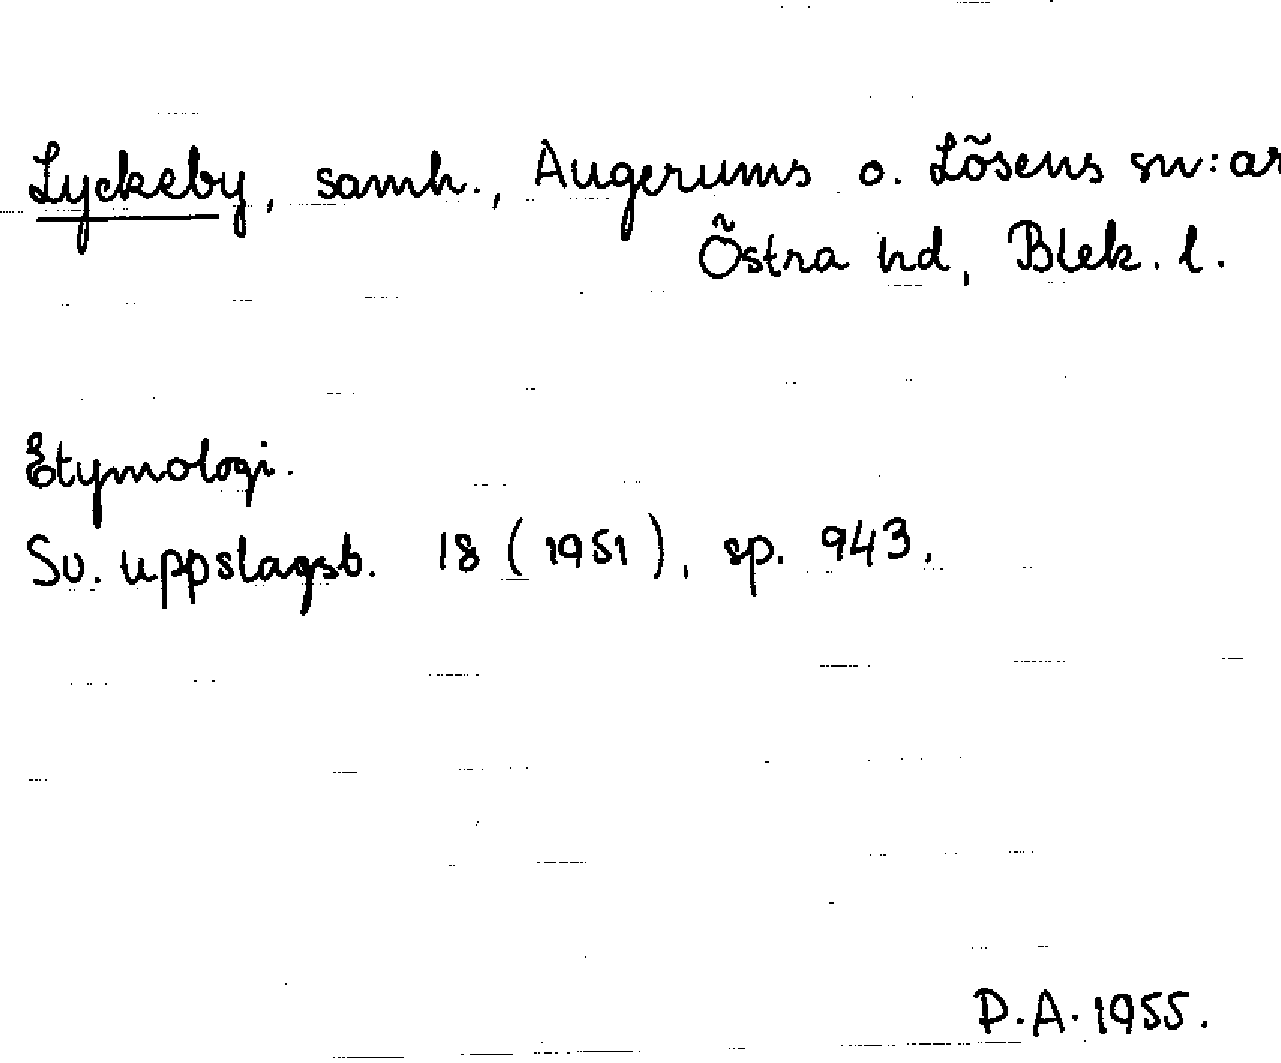 Lyckeby, samh., Augerums o. Lösens sn:ar
Östra hd, Blek. l.
Etymologi.
Sv. uppslagsb. 18 (1951), sp. 943.
D.A. 1955.